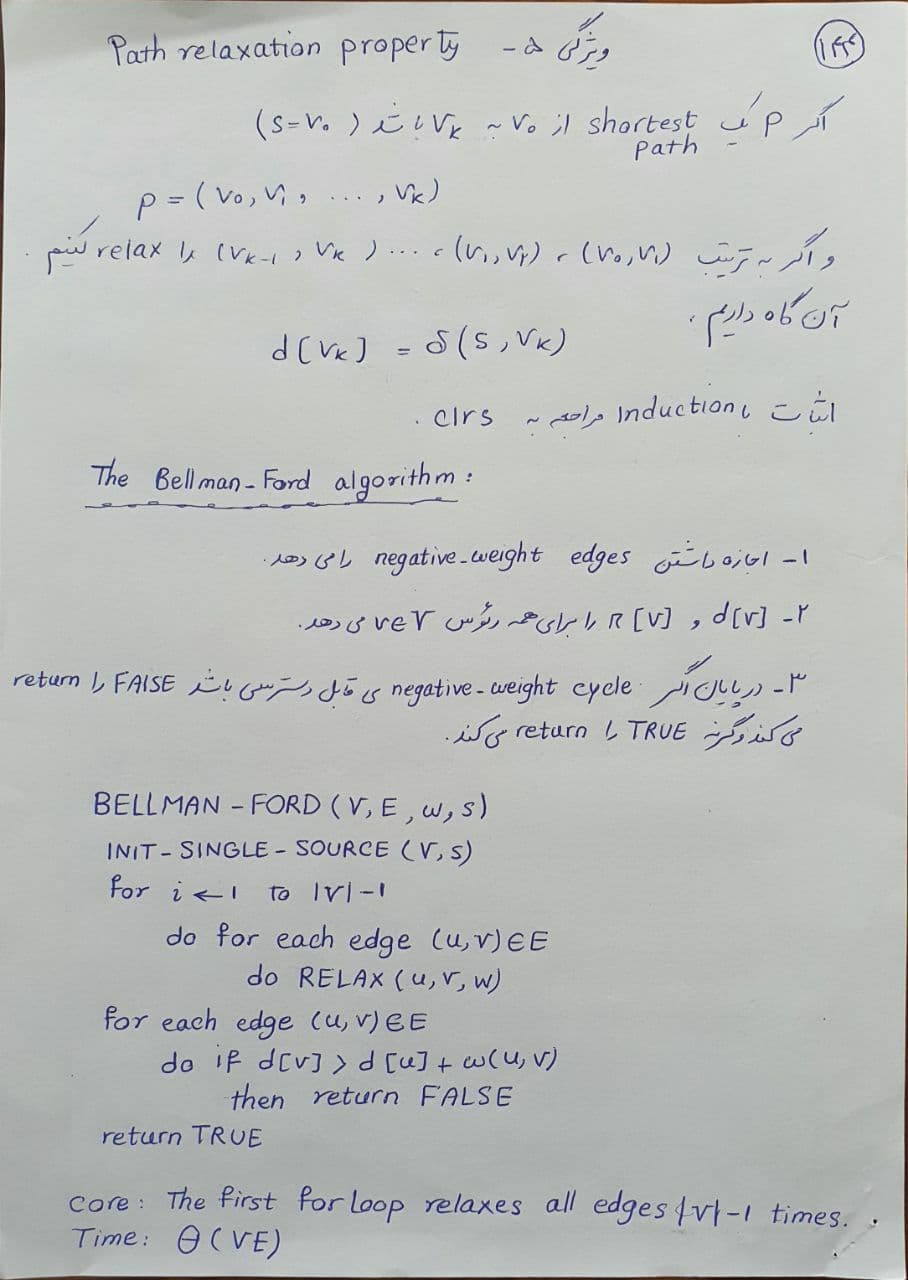 ۱۴۴
ویژگی ۵- Path relaxation property
اگر p یک shortest path از v₀ به vₖ باشد (s=v₀)
p = (v₀, v₁, ..., vₖ)
و اگر به ترتیب (v₀, v₁)، (v₁, v₂)، ... (vₖ₋₁, vₖ) را relax کنیم.
آن گاه داریم:
d[vₖ] = δ(s, vₖ)
اثبات: Induction مراجعه به clrs.
The Bellman-Ford algorithm:
۱- اجازه داشتن negative-weight edges را می دهد.
۲- d[v] و π[v] را برای همه رئوس v∈V می دهد.
۳- در پایان اگر negative-weight cycle ی قابل دسترسی باشد FAlSE را return
می کند وگرنه TRUE را return می کند.
BELLMAN-FORD(V, E, w, s)
INIT-SINGLE-SOURCE(V, s)
for i ← 1 to |V|-1
do for each edge (u, v)∈E
do RELAX(u, v, w)
for each edge (u, v)∈E
do if d[v] > d[u] + w(u, v)
then return FALSE
return TRUE
core: The first for loop relaxes all edges |V|-1 times.
Time: Θ(VE)